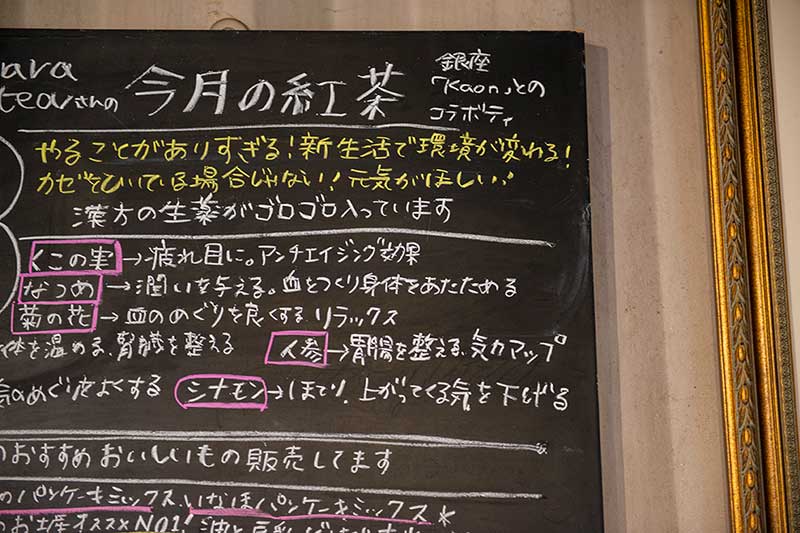 ara
teaさんの 今月の紅茶
銀座
「Kaon」との
コラボティ
やることがありすぎる!新生活で環境が変わる!
カゼをひいている場合じゃない!元気がほしいっ!
漢方の生薬がゴロゴロ入っています
くこの実→疲れ目に。アンチエイジング効果
なつめ→潤いを与える。血をつくり身体をあたためる
菊の花→血のめぐりを良くする リラックス
体を温める、腎臓を整える 人参→胃腸を整える、気力アップ
気のめぐりをよくする シナモン→ほてり、上がってくる気を下げる
のおすすめおいしいもの販売してます
のパンケーキミックス、いなほパンケーキミックス*
のお土産オススメNO1!